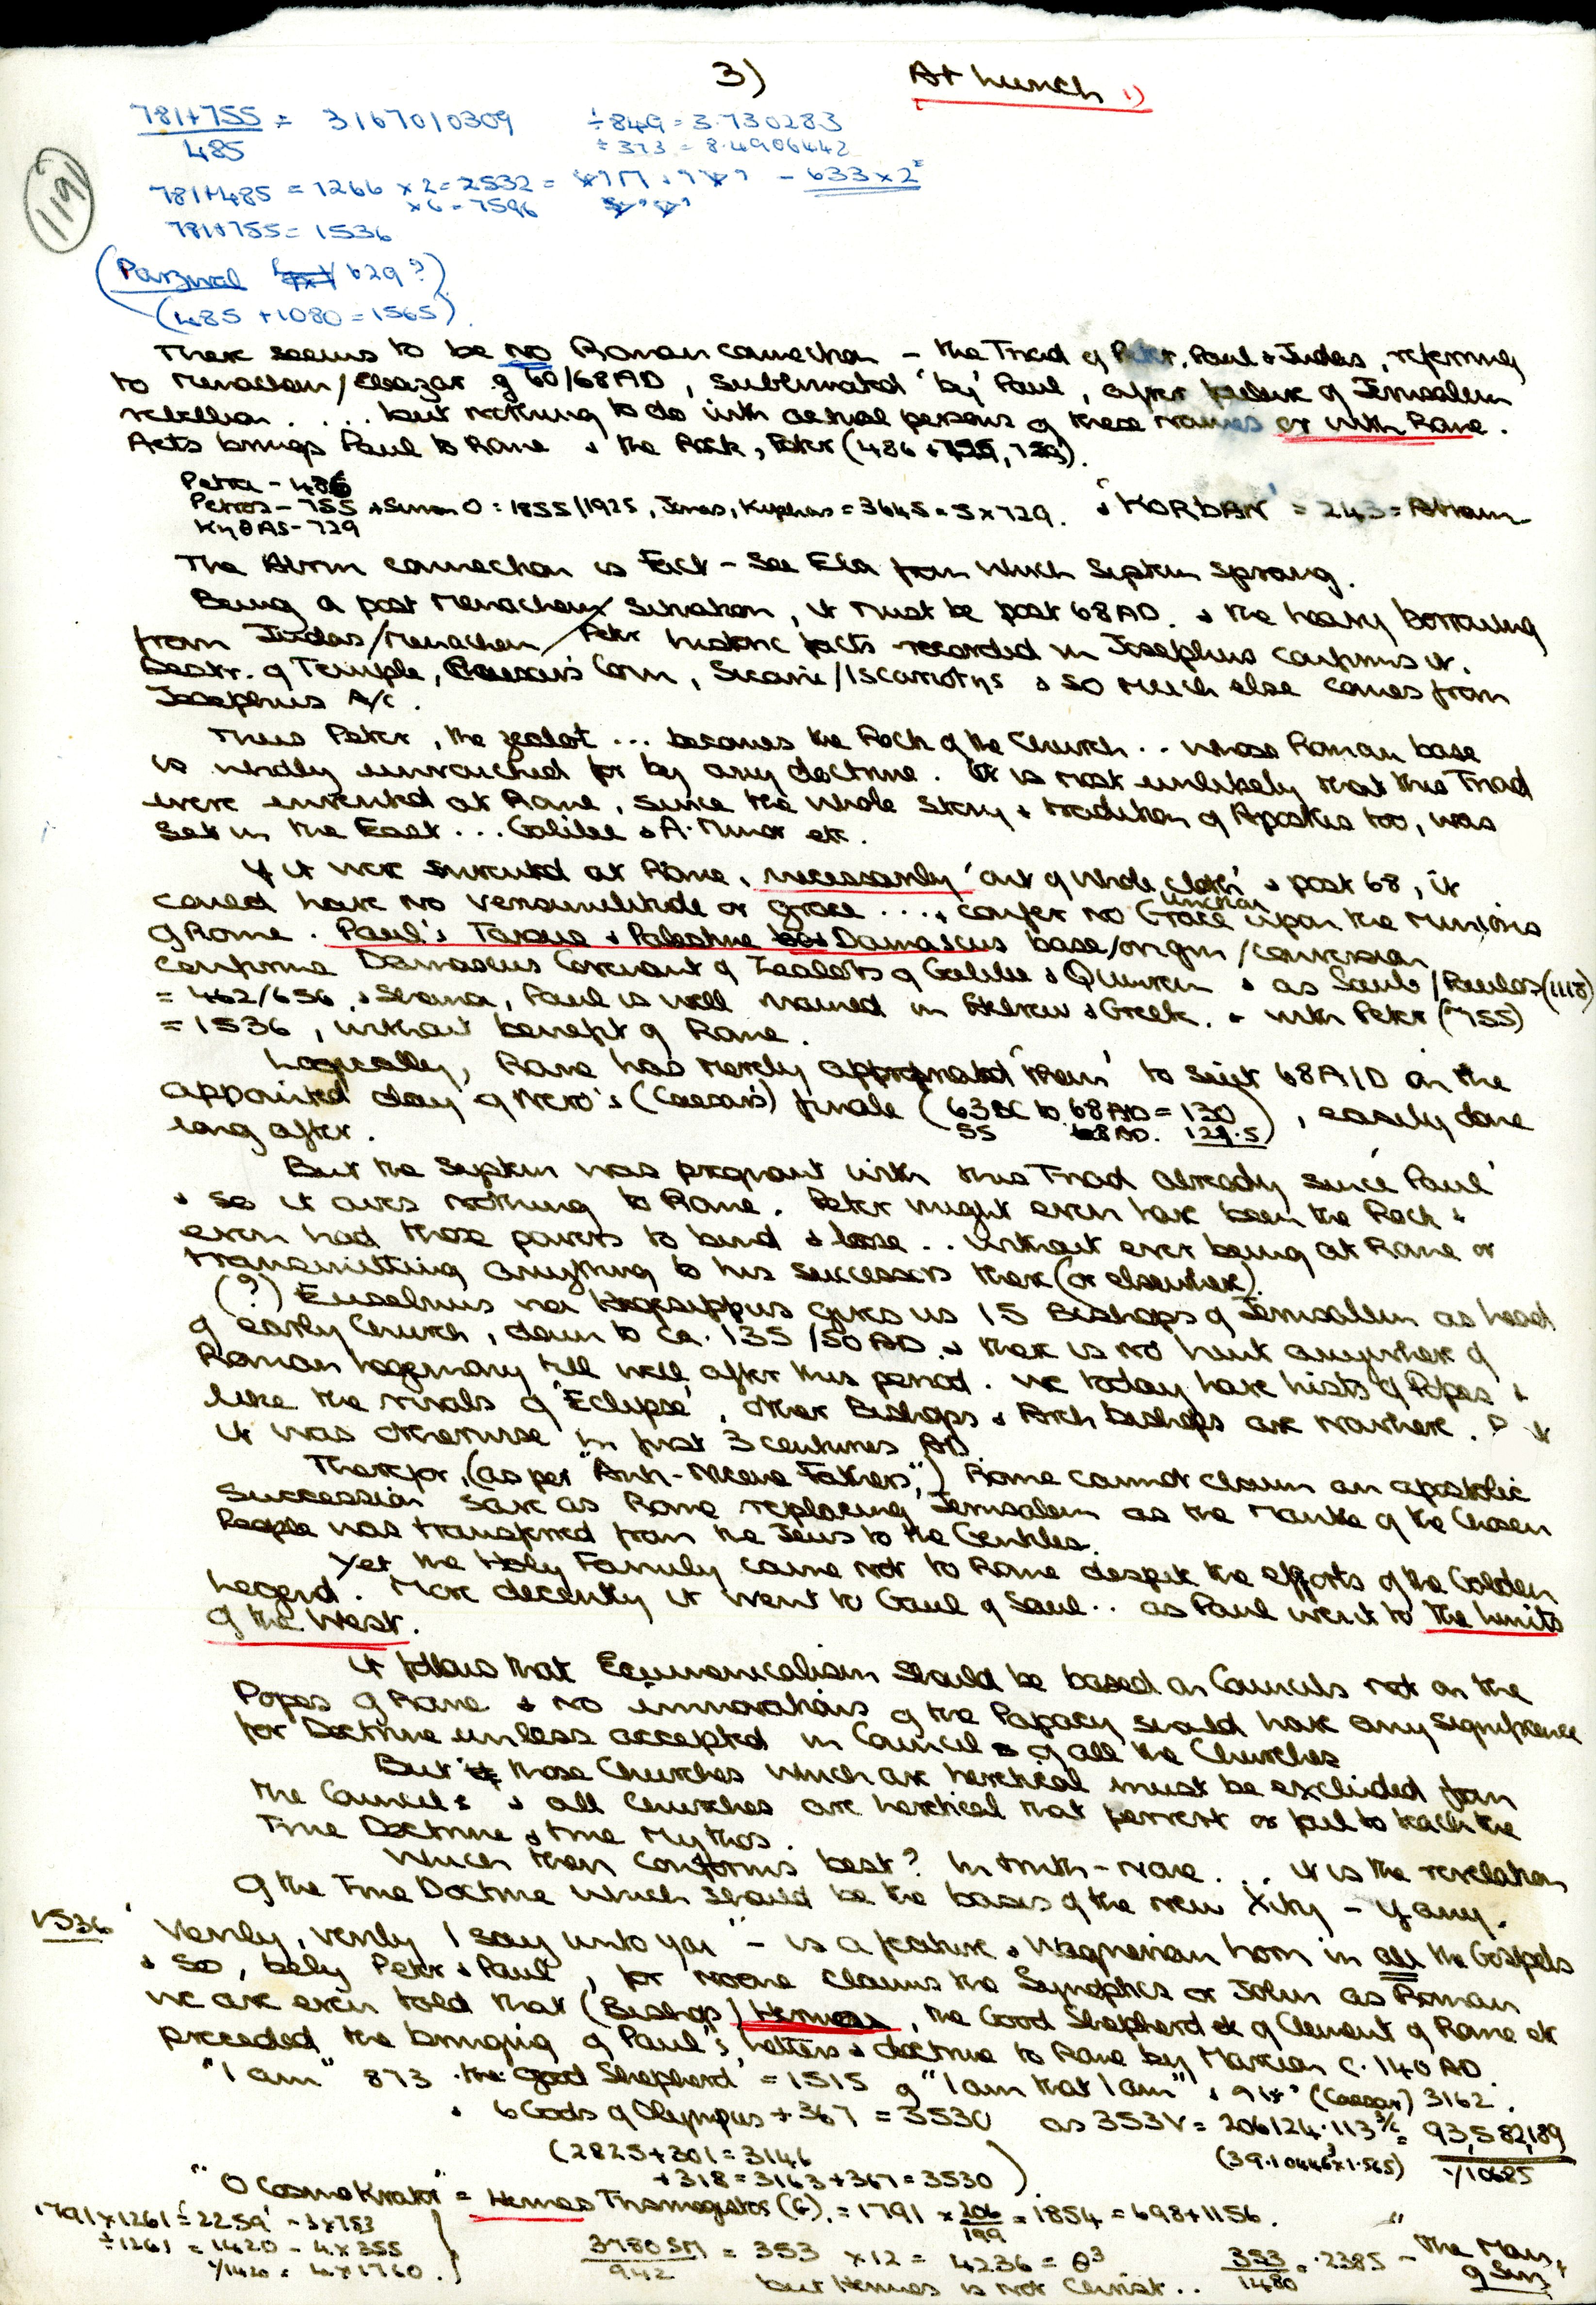 3) At Lunch 1)
781+755 = 3167010309 ÷849 = 3.730283
485 ÷373 = 8.4906442
119
781+485 = 1266 x 2 = 2532 = - 633 x 2²
x 6 = 7596
781+755 = 1536
(Parzival 629?)
(485 + 1080 = 1565)
There seems to be no Roman connection - the Triad of Peter, Paul & Judas, referring
to Menachem/Eleazar of 60/68AD, sublimated 'by' Paul, after failure of Jerusalem
rebellion .... but nothing to do with actual persons of these names or with Rome.
Acts brings Paul to Rome & the Rock, Peter (486 & 755,
Petra - 486
Petros - 755 + Simon O = 1855/1925, Jonas, Kephas = 3645 = 5 x 729. & 'KORBAN' = 243 = Abram
KηθAS - 729
The Abrm connection is Fact - See Ela from which System sprang.
Being a post Menachem situation, it must be post 68AD. & the heavy borrowing
from Judas/Menachem/Peter historic facts recorded in Josephus confirms it.
Destr. of Temple, Corn, Sicarii/Iscariotηs & so much else comes from
Josephus A/c.
Thus Peter, the zealot ... becomes the Rock of the Church .. whose Roman base
is wholly unvouched for by any doctrine. It is most unlikely that this Triad
were invented at Rome, since the whole story & tradition of Apostles too, was
set in the East ... Galilee & A. Minor etc.
If it were invented at Rome, necessarily 'out of whole cloth' & post 68, it
could have no verisimilitude or grace ... & confer no Grace upon the
of Rome. Paul's Tarsus & Palestine Damascus base/origin/conversion
confirms Damascus Covenant of Zealots of Galilee & Qumren & as Saulo/Paulos (1118)
= 462/656, & Shama, Paul is well named in Hebrew & Greek. & with Peter (755)
= 1536, without benefit of Rome.
Logically, Rome has merely appropriated 'them' to suit 68A/D on the
appointed day of Nero's (Caesar's) finale (63BC to 68AD = 130), easily done
55 68AD. 129.5
long after.
But the System was pregnant with this Triad already since 'Paul'
& so it owes nothing to Rome. Peter might even have been the Rock &
even had those powers to bind & loose .. without ever being at Rome or
transmitting anything to his successors there (or elsewhere).
(?) Eusebius via Hegesippus gives us 15 Bishops of Jerusalem as head
of early Church, down to ca. 135/50AD. & there is no hint anywhere of
Roman hegemony till well after this period. We today have lists of Popes &
like the rivals of 'Eclipse', other Bishops & Arch bishops are nowhere.
it was otherwise in first 3 centuries AD.
Therefor, (as per "Anti-Nicene Fathers",) Rome cannot claim an apostolic
succession save as Rome replacing Jerusalem as the Mantle of the Chosen
People was transferred from the Jews to the Gentiles.
Yet the Holy Family came not to Rome despite the efforts of the Golden
Legend. More decently it went to Gaul of Saul .. as Paul went to the limits
of the West.
It follows that Ecumenicalism should be based on Councils not on the
Popes of Rome & no innovations of the Papacy should have any significance
for Doctrine unless accepted in Council of all the Churches
But those Churches which are heretical must be excluded from
the Councils & all Churches are heretical that pervert or fail to teach the
True Doctrine & true Mythos.
Which then conforms best? In truth - none ... it is the revelation
of the True Doctrine which should be the basis of the new Xity - if any.
1536 'Verily, verily I say unto you" - is a feature & Wagnerian horn in all the Gospels
& so, bely Peter & Paul, for noone claims the Synoptics or John as Roman
we are even told that (Bishop) Hermes, the Good Shepherd of Clement of Rome etc
preceded the bringing of Paul's letters & doctrine to Rome by Marcion c. 140 AD.
"I am" 873 the Good Shepherd = 1515 of "I am that I am" & (Caesar) 3162.
& 6 Gods of Olympus + 367 = 3530 as 353√ = 206124.113 3/2 = 93,582,189
(2825+301 = 3146 (39.10446³ x 1.565) √10685
+318 = 3163 + 367 = 3530)
"O Cosmokrator" = Hermes Trismegistos (G). = 1791 x 206 = 1854 = 698+1156.
199
1791 x 1261 = 2259 - 3 x 753
÷1261 = 1420 - 4 x 355
1/1420 = 4 x 1760.
3780 SM = 353 x 12 = 4236 = θ³ 353 = .2385 - "The Man
942 1480 of Sin"
but Hermes is not Christ..